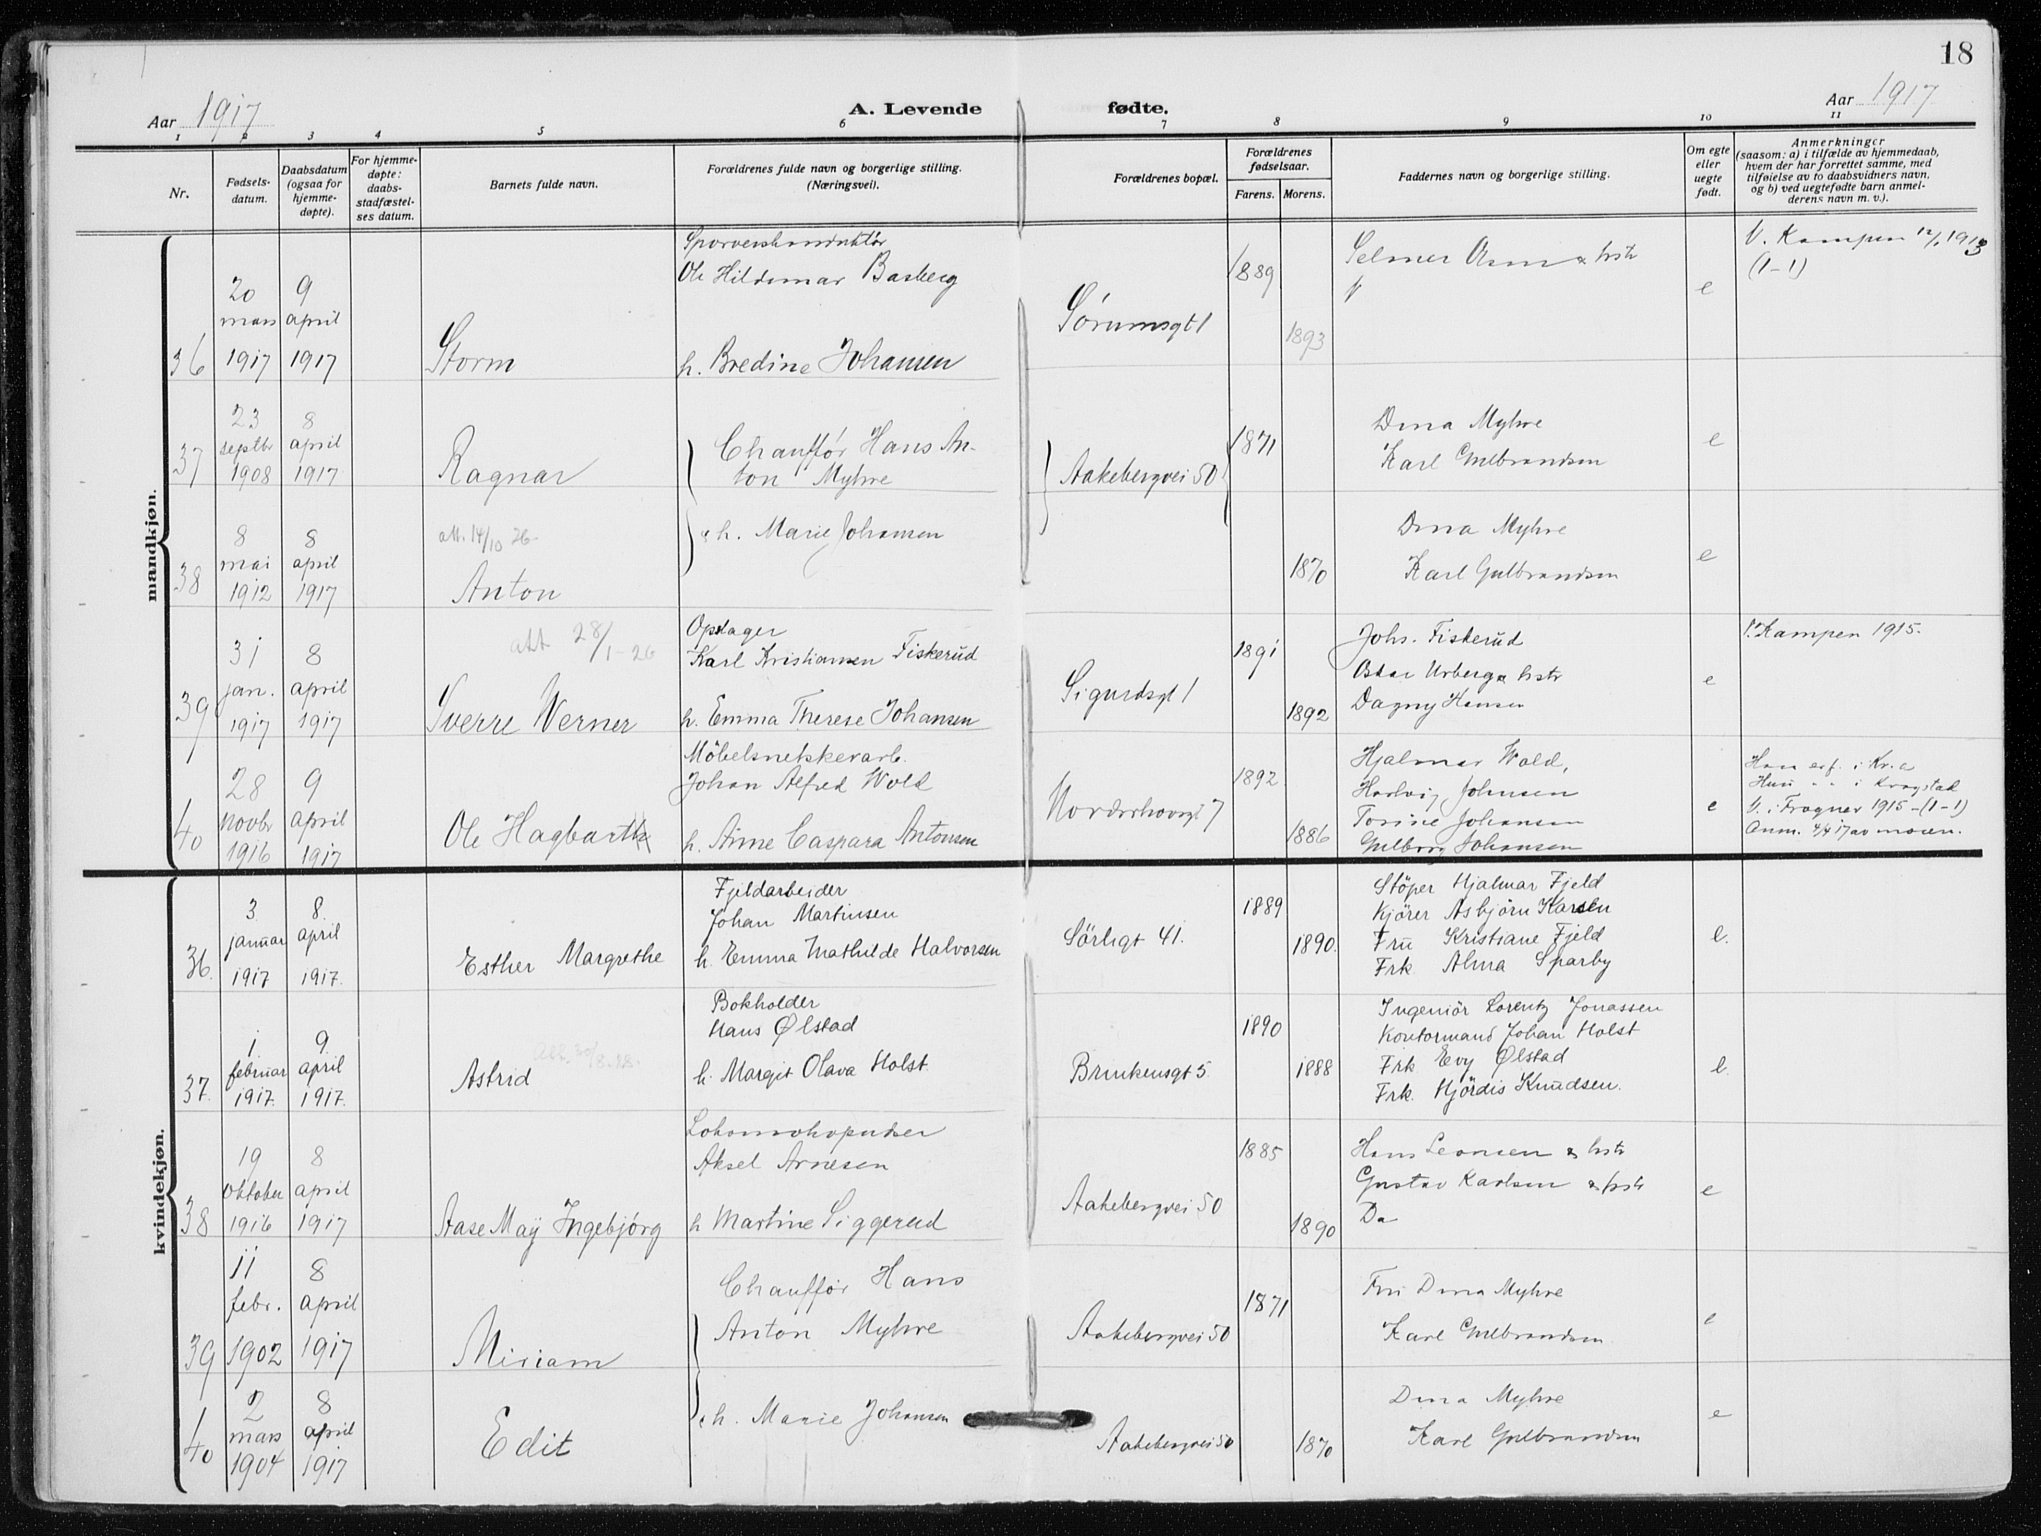 18
Aar 1917
A. Levende fødte.
Aar 1917
1 2 3 4 5 6 7 8 9 10 11
Nr.
Fødsels-
datum.
Daabsdatum
(ogsaa for
hjemme-
døpte).
For hjemme-
døpte:
daabs-
stadfæstel-
ses datum.
Barnets fulde navn.
Forældrenes fulde navn og borgerlige stilling.
(Næringsvei).
Forældrenes bopæl.
Forældrenes
fødselsaar.
Farens. Morens.
Faddernes navn og borgerlige stilling.
Om egte
eller
uegte
født.
Anmerkninger
(saasom: a) i tilfælde av hjemmedaab,
hvem der har forrettet samme, med
tilføielse av to daabsvidners navn,
og b) ved uegtefødte barn anmel-
derens navn m. v.).
mandkjøn.
36
20
mars
1917
9
april
1917
Storm
Sporveiskonduktør
Ole Hildemar Basberg
h. Bredine Johansen
Sørumsgt 1
1889
1893
Selmer & hstr
e
V. Kampen 12/1 1913
(1-1)
37
23
septbr
1908
8
april
1917
Ragnar
Chauffør Hans An-
ton Myhre
Aakebergvei 50
1871
Dina Myhre
Karl Gulbrandsen
e
38
8
mai
1912
8
april
1917
att. 14/10 26
Anton
h. Marie Johansen
1870
Dina Myhre
Karl Gulbrandsen
e
39
31
jan.
1917
8
april
1917
att 28/1-26
Sverre Werner
Opslager
Karl Kristiansen Fiskerud
h. Emma Therese Johansen
Sigurdsgt 1
1891
1892
Johs. Fiskerud
Oskar Urberg & hstr
Dagny Hansen
e
V. Kampen 1915.
40
28
novbr
1916
9
april
1917
Ole Hagbarth
Møbelsnekkerarb.
Johan Alfred Wold
h. Anne Caspara Antonsen
Nordrehovgt 7
1892
1886
Hjalmar Wold,
Hartvig Johnsen
Torine Johansen
Gulborg Johansen
e
Han i Kr.a
Hun " " i Kragstad
V. i Frogner 1915 - (1-1)
Anm. 4/4 17 av moren.
kvindekjøn.
36.
3
januar
1917
8.
april
1917.
Esther Margrethe
Fjeldarbeider
Johan Martinsen
h. Emma Mathilde Halvorsen
Sørligt 41.
1889
1890.
Støper Hjalmar Fjeld
Kjører Asbjørn Karsen
Fru Kristiane Fjeld
Frk Alma Sparby
e.
37.
1
februar
1917.
9
april
1917.
Astrid
Bokholder
Hans Ølstad
h. Margit Olava Holst
Brinkensgt 5
1890
1888
Ingeniør Lorentz Jonassen
Kontormand Johan Holst
Frk Evy Ølstad
Frk. Hjördis Knudsen.
e.
38
19
oktober
1916
8
april
1917
Aase Maÿ Ingebjørg
Lokomotivpudser
Aksel Arnesen
h Martine Siggerud
Aakebergvei 50
1885
1890
Hans Leonsen & hstr
Gustav Karlsen & hstr
Da
e
39
11
febr.
1902
8
april
1917
Miriam
Chauffør Hans
Anton Myhre
Aakebergvei 50
1871
Fru Dina Myhre
Karl Gulbrandsen
e
40
2
mars
1904
8
april
1917
Edit
h. Marie Johansen
Aakebergvei 50
1870
Dina Myhre
Karl Gulbrandsen
e